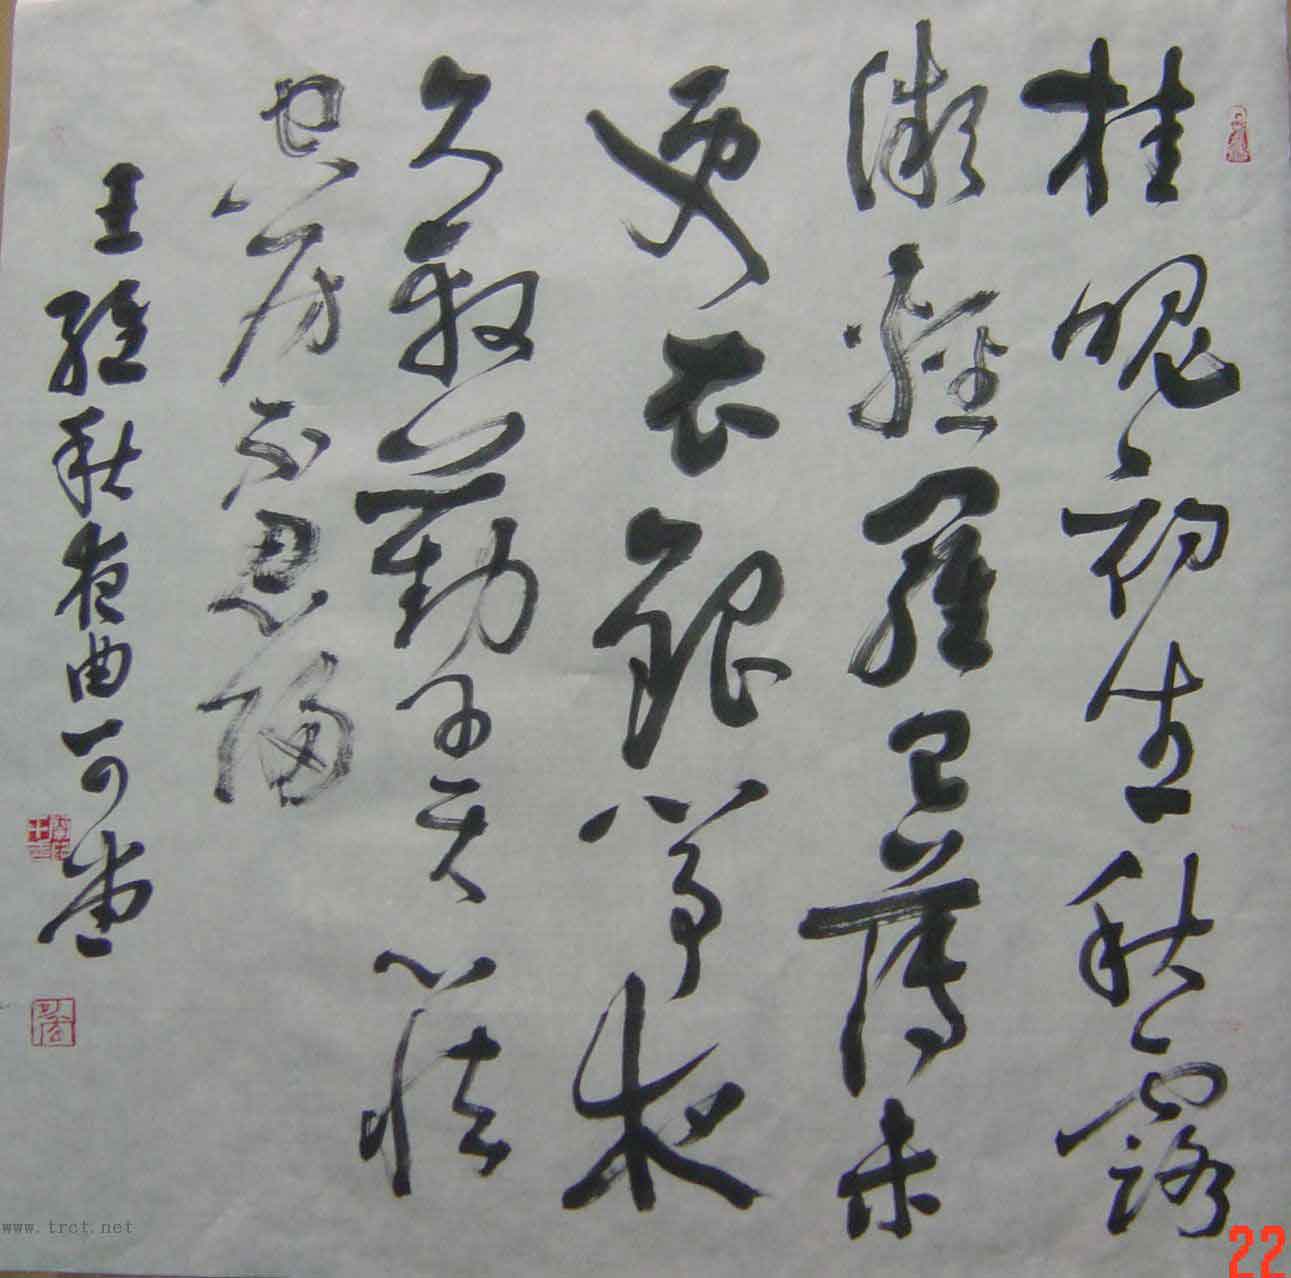 桂魄初生秋露
微輕羅已薄未
更衣銀箏夜
久殷勤弄心怯
空房不忍歸
王維秋夜曲可堂
www.trct.net
22